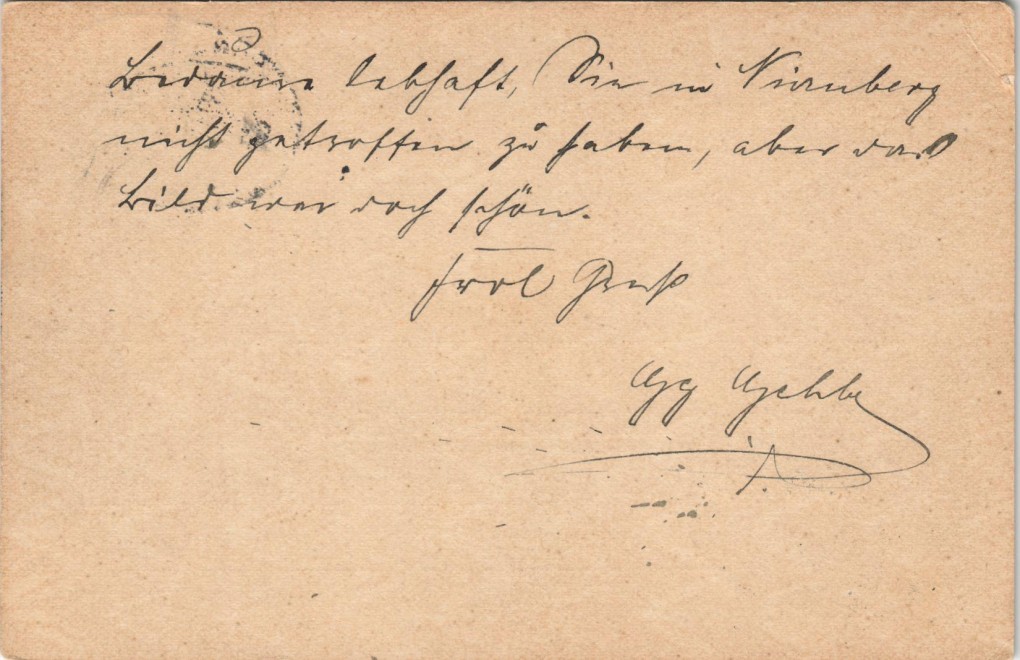 Bedaure lebhaft, Sie in Nürnberg
nicht getroffen zu haben, aber das
Bild war doch schön.
Frdl Gruß
Gg